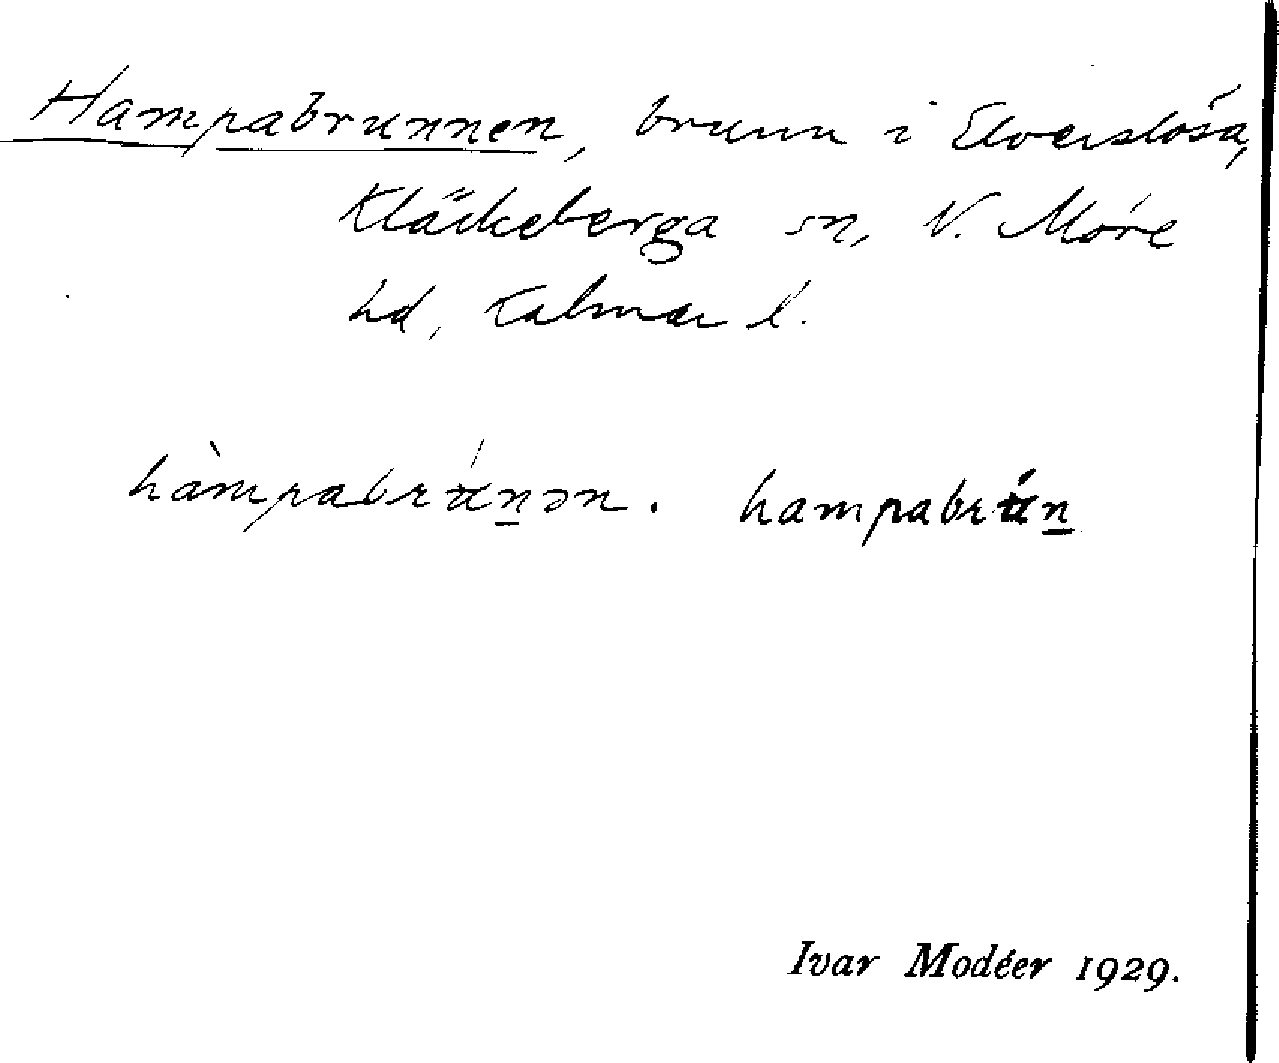 Hampabrunnen, brunn i Elverslösa,
Kläckeberga sn, N. Möre
hd, Kalmar l.
hàmpabrún̲ən. hampabrún̲
Ivar Modéer 1929.